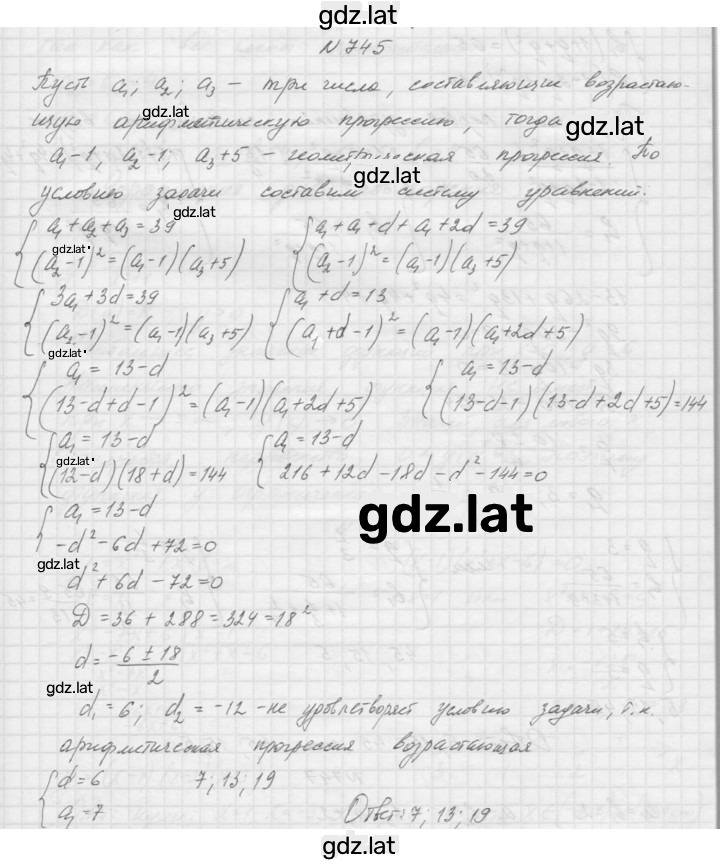 gdz.lat
N 745
Пусть a₁; a₂; a₃ — три числа, составляющие возрастаю-
щую арифметическую прогрессию, тогда
gdz.lat
gdz.lat
a₁-1, a₂-1, a₃+5 — геометрическая прогрессия. По
gdz.lat
условию задачи составим систему уравнений.
gdz.lat
{ a₁+a₂+a₃=39 { a₁+a₁+d+a₁+2d=39
gdz.lat
(a₂-1)²=(a₁-1)(a₃+5) (a₂-1)²=(a₁-1)(a₃+5)
{ 3a₁+3d=39 { a₁+d=13
(a₂-1)²=(a₁-1)(a₃+5) (a₁+d-1)²=(a₁-1)(a₁+2d+5)
gdz.lat
{ a₁=13-d { a₁=13-d
(13-d+d-1)²=(a₁-1)(a₁+2d+5) (13-d-1)(13-d+2d+5)=144
{ a₁=13-d { a₁=13-d
gdz.lat
(12-d)(18+d)=144 216+12d-18d-d²-144=0
{ a₁=13-d
gdz.lat
-d²-6d+72=0
gdz.lat
d²+6d-72=0
D=36+288=324=18²
d=(-6±18)/2
gdz.lat
d₁=6; d₂=-12 -не удовлетворяет условию задачи, т.к.
арифметическая прогрессия возрастающая
{ d=6 7; 13; 19
a₁=7 Ответ: 7; 13; 19
gdz.lat